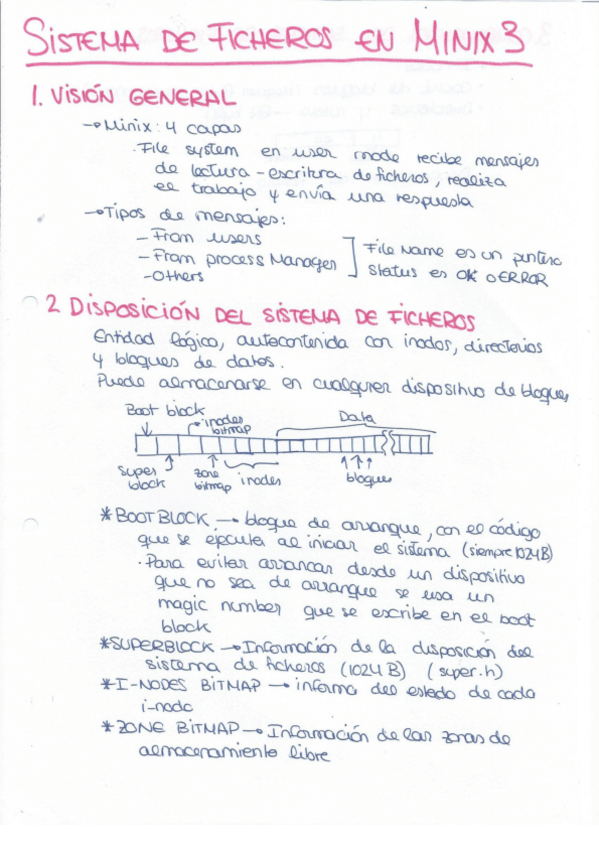 SISTEMA DE FICHEROS EN MINIX 3
1. VISIÓN GENERAL
→ Minix: 4 capas
· File system en user mode recibe mensajes
de lectura - escritura de ficheros, realiza
el trabajo y envía una respuesta
→ Tipos de mensajes:
- From users
- From process Manager
- Others
File Name es un puntero
Status es OK o ERROR
2 DISPOSICIÓN DEL SISTEMA DE FICHEROS
Entidad lógica, autocontenida con inodos, directorios
y bloques de datos.
Puede almacenarse en cualquier dispositivo de bloques
Boot block
inodes
bitmap
Data
super
block
zone
bitmap
inodes
bloques
* BOOT BLOCK → bloque de arranque, con el código
que se ejecuta al iniciar el sistema (siempre 1024B)
· Para evitar arrancar desde un dispositivo
que no sea de arranque se usa un
magic number que se escribe en el boot
block
* SUPERBLOCK → Información de la disposición del
sistema de ficheros (1024 B) (super.h)
* I-NODES BITMAP → informa del estado de cada
i-nodo
* ZONE BITMAP → Información de las zonas de
almacenamiento libre